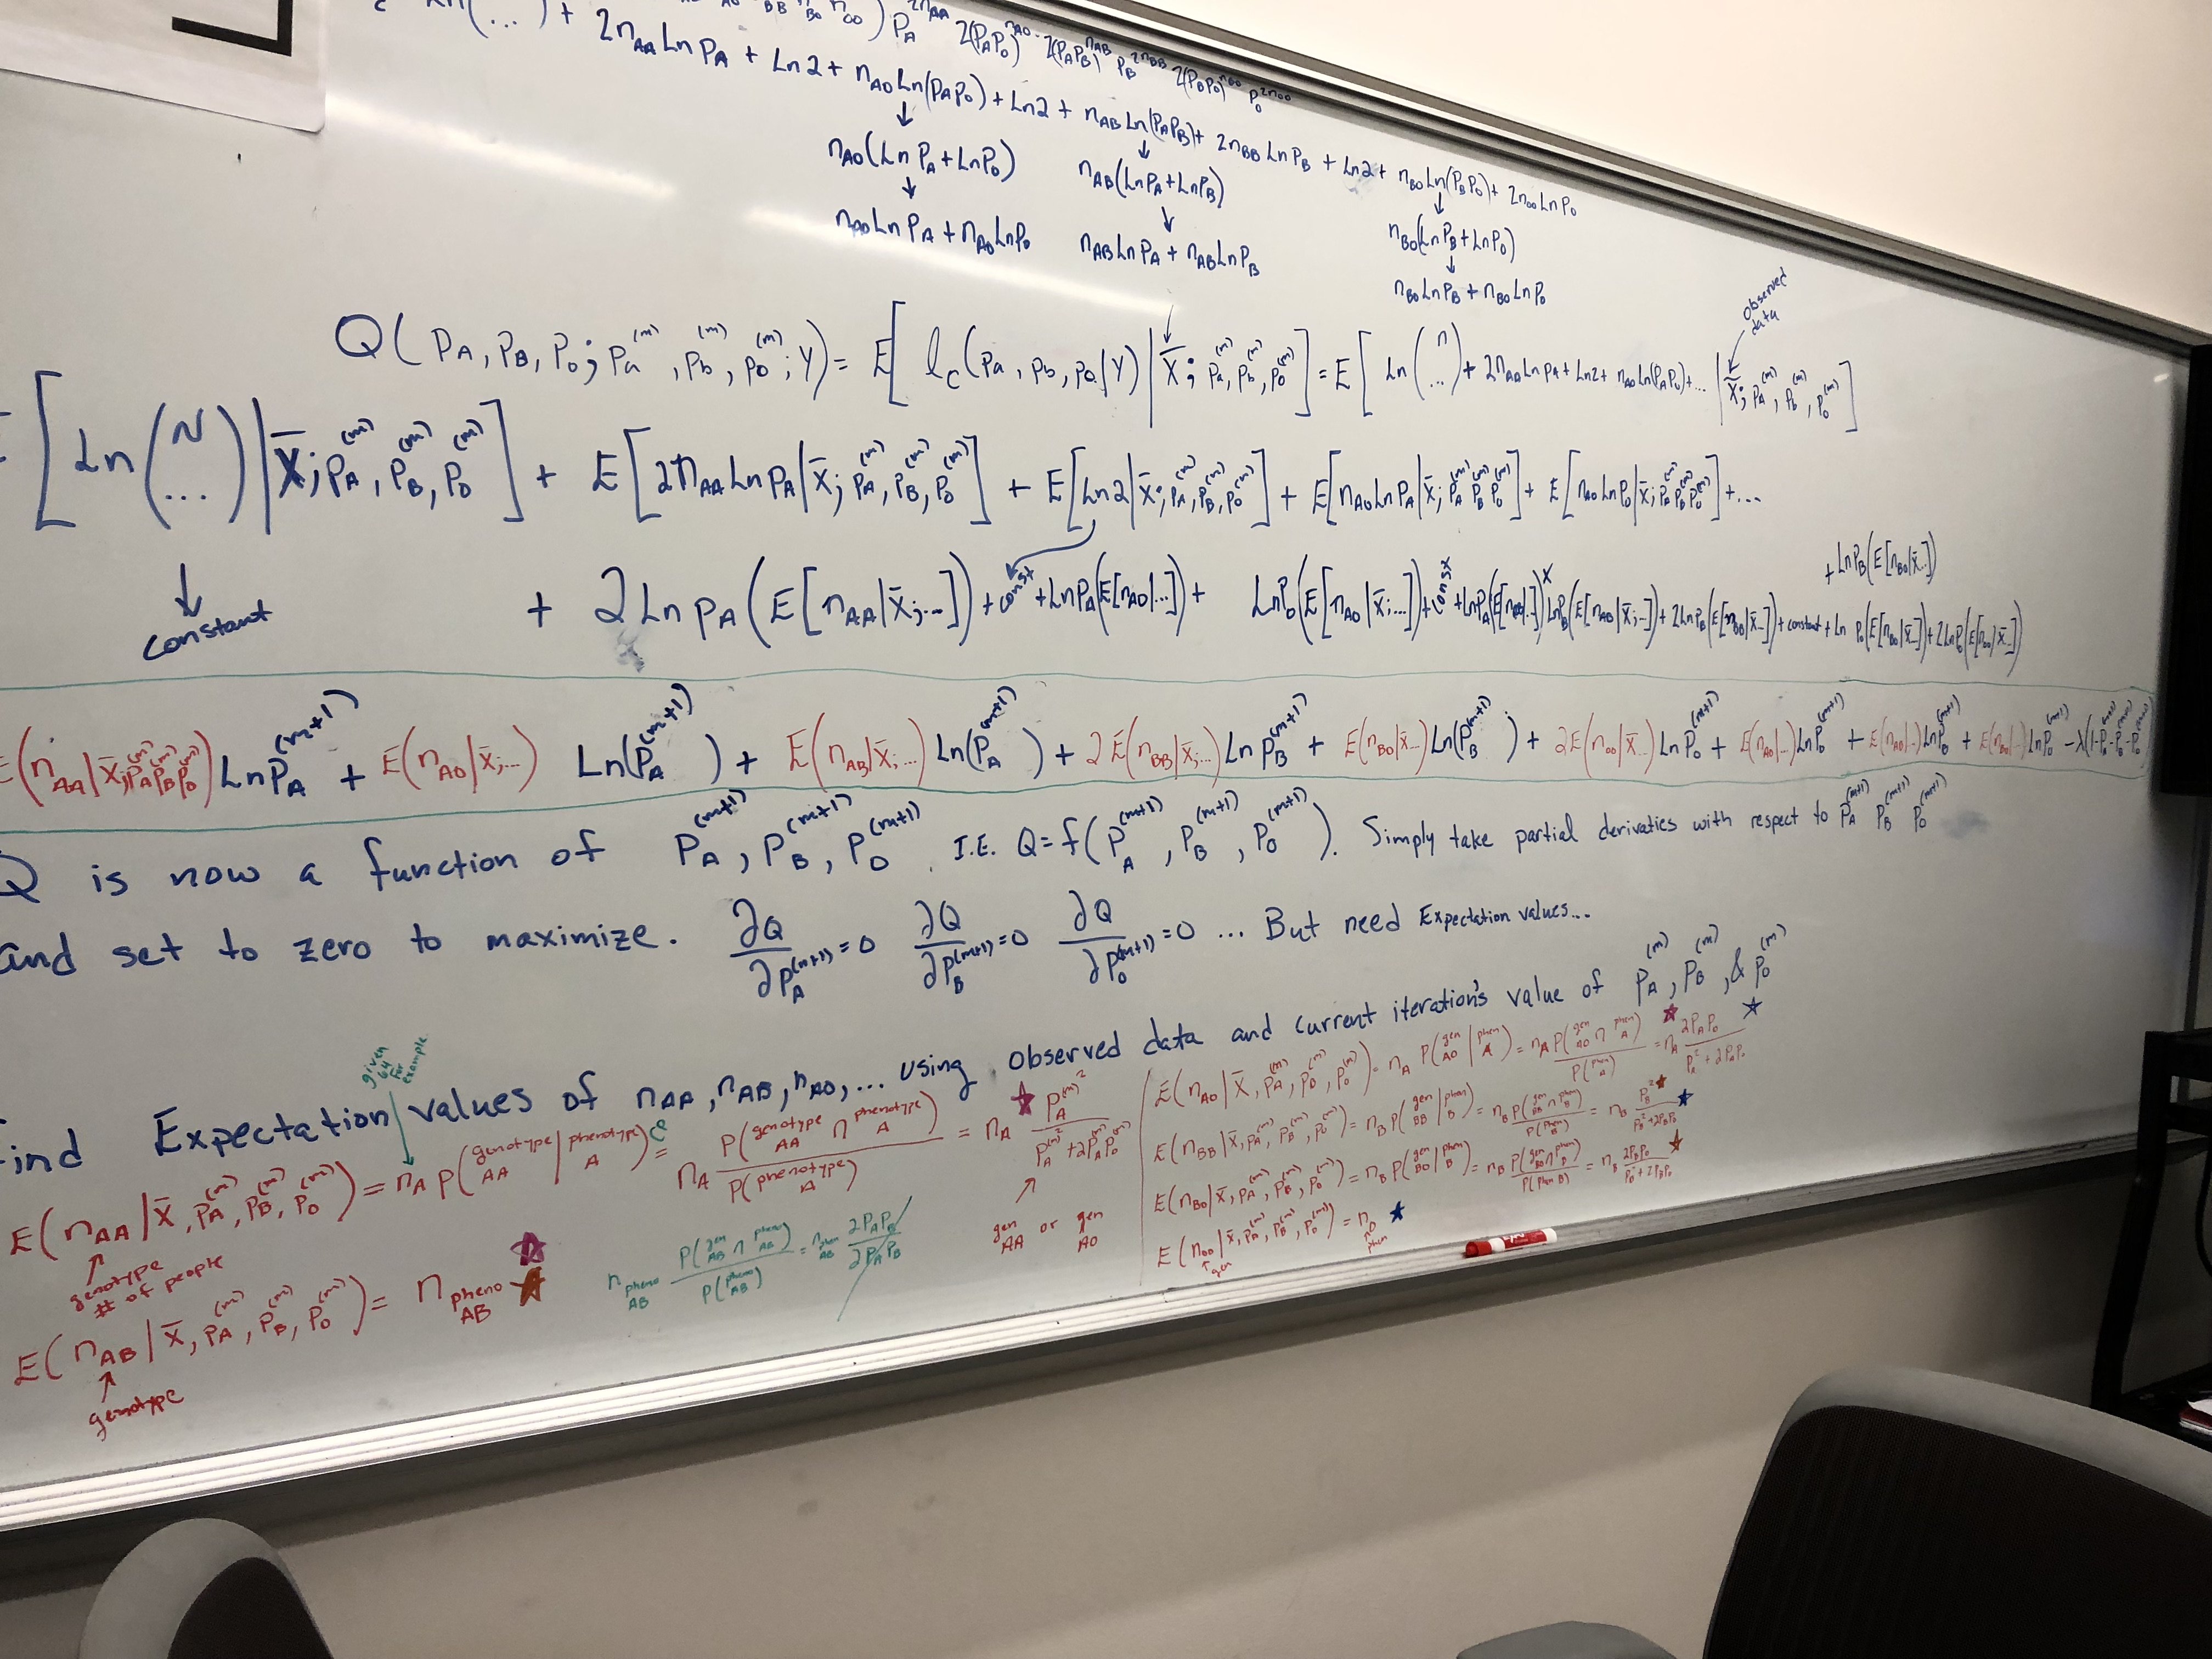 ln(...) + 2n_AA Ln P_A + Ln2 + n_AO Ln(P_A P_O) + Ln2 + n_AB Ln(P_A P_B) + 2n_BB Ln P_B + Ln2 + n_BO Ln(P_B P_O) + 2n_OO Ln P_O
P_A^2n_AA 2(P_A P_O)^n_AO 2(P_A P_B)^n_AB P_B^2n_BB 2(P_B P_O)^n_BO P_O^2n_OO
↓ ↓ ↓
n_AO(Ln P_A + Ln P_O) n_AB(Ln P_A + Ln P_B) n_BO(Ln P_B + Ln P_O)
↓ ↓ ↓
n_AO Ln P_A + n_AO Ln P_O n_AB Ln P_A + n_AB Ln P_B n_BO Ln P_B + n_BO Ln P_O
observed
data
Q(P_A, P_B, P_O; P_a^(m), P_b^(m), P_o^(m); Y) = E[l_c(Pa, Pb, Po|Y) | X̄; P_a^(m), P_b^(m), P_o^(m)] = E[Ln(n ...) + 2n_AA Ln P_A + Ln2 + n_AO Ln(P_A P_O) + ... | X̄; P_A^(m), P_B^(m), P_O^(m)]
[Ln(N ...) | X̄; P_A^(m), P_B^(m), P_O^(m)] + E[2n_AA Ln P_A | X̄; P_A^(m), P_B^(m), P_O^(m)] + E[Ln2 | X̄; P_A^(m), P_B^(m), P_O^(m)] + E[n_AO Ln P_A | X̄; P_A^(m) P_B^(m) P_O^(m)] + E[n_AO Ln P_O | X̄; P_A^(m) P_B^(m) P_O^(m)] + ...
↓
constant
+ 2 Ln P_A (E[n_AA | X̄; ...]) + const + Ln P_A (E[n_AO | ...]) + Ln P_O (E[n_AO | X̄; ...]) + const + Ln P_A + Ln P_B (E[n_AO | X̄; ...]) + 2 Ln P_B (E[n_BB | X̄ ...]) + constant + Ln P_O (E[n_BO | X̄ ...]) + 2 Ln P_O (E[n_OO | X̄ ...])
+ Ln P_B (E[n_BO | X̄ ...])
E(n_AA | X̄; P_A^(m) P_B^(m) P_O^(m)) Ln P_A^(m+1) + E(n_AO | X̄; ...) Ln(P_A^(m+1)) + E(n_AB | X̄; ...) Ln(P_A^(m+1)) + 2E(n_BB | X̄; ...) Ln P_B^(m+1) + E(n_BO | X̄ ...) Ln(P_B^(m+1)) + 2E(n_OO | X̄ ...) Ln P_O^(m+1) + E(n_AO | ...) Ln P_O^(m+1) + E(n_AO | ...) Ln P_B^(m+1) + E(n_BO | ...) Ln P_O^(m+1) - λ(1 - P_A^(m+1) - P_B^(m+1) - P_O^(m+1))
Q is now a function of P_A^(m+1), P_B^(m+1), P_O^(m+1). I.E. Q = f(P_A^(m+1), P_B^(m+1), P_O^(m+1)). Simply take partial derivaties with respect to P_A^(m+1) P_B^(m+1) P_O^(m+1)
and set to zero to maximize. ∂Q/∂P_A^(m+1) = 0 ∂Q/∂P_B^(m+1) = 0 ∂Q/∂P_O^(m+1) = 0 ... But need Expectation values...
find Expectation values of n_AA, n_AB, n_AO, ... using observed data and current iteration's value of P_A^(m), P_B^(m), & P_O^(m)
given
for
example
E(n_AA | X̄, P_A^(m), P_B^(m), P_O^(m)) = n_A P(genotype AA | phenotype A) = n_A P(genotype AA ∩ phenotype A) / P(phenotype A) = n_A P_A^(m)² / (P_A^(m)² + 2P_A^(m) P_O^(m))
↑
genotype
# of people
gen AA or gen AO
E(n_AB | X̄, P_A^(m), P_B^(m), P_O^(m)) = n_pheno AB
↑
genotype
n_pheno AB P(gen AB ∩ pheno AB) / P(pheno AB) = n_pheno AB 2P_A P_B / 2P_A P_B
E(n_AO | X̄, P_A^(m), P_B^(m), P_O^(m)) = n_A P(gen AO | phen A) = n_A P(gen AO ∩ phen A) / P(phen A) = n_A 2P_A P_O / (P_A² + 2P_A P_O)
E(n_BB | X̄, P_A^(m), P_B^(m), P_O^(m)) = n_B P(gen BB | phen B) = n_B P(gen BB ∩ phen B) / P(phen B) = n_B P_B² / (P_B² + 2P_B P_O)
E(n_BO | X̄, P_A^(m), P_B^(m), P_O^(m)) = n_B P(gen BO | phen B) = n_B P(gen BO ∩ phen B) / P(phen B) = n_B 2P_B P_O / (P_B² + 2P_B P_O)
E(n_OO | X̄, P_A^(m), P_B^(m), P_O^(m)) = n_O phen
↑ gen